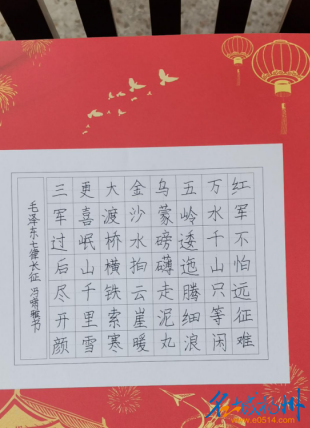 红军不怕远征难
万水千山只等闲
五岭逶迤腾细浪
乌蒙磅礴走泥丸
金沙水拍云崖暖
大渡桥横铁索寒
更喜岷山千里雪
三军过后尽开颜
毛泽东七律长征
www.e0514.com